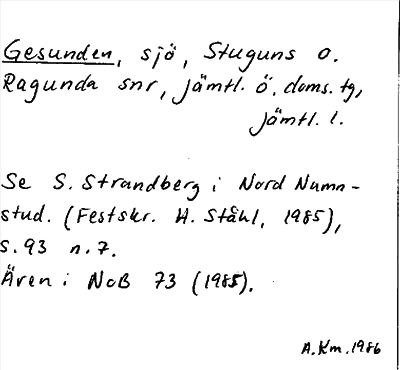 Gesunden, sjö, Stuguns o.
Ragunda snr, jämtl. ö. doms. tg,
jämtl. l.
Se S. Strandberg i Nord Namn-
stud. (Festskr. H. Ståhl, 1985),
s. 93 n. 7.
Även i NoB 73 (1985).
A.Km. 1986